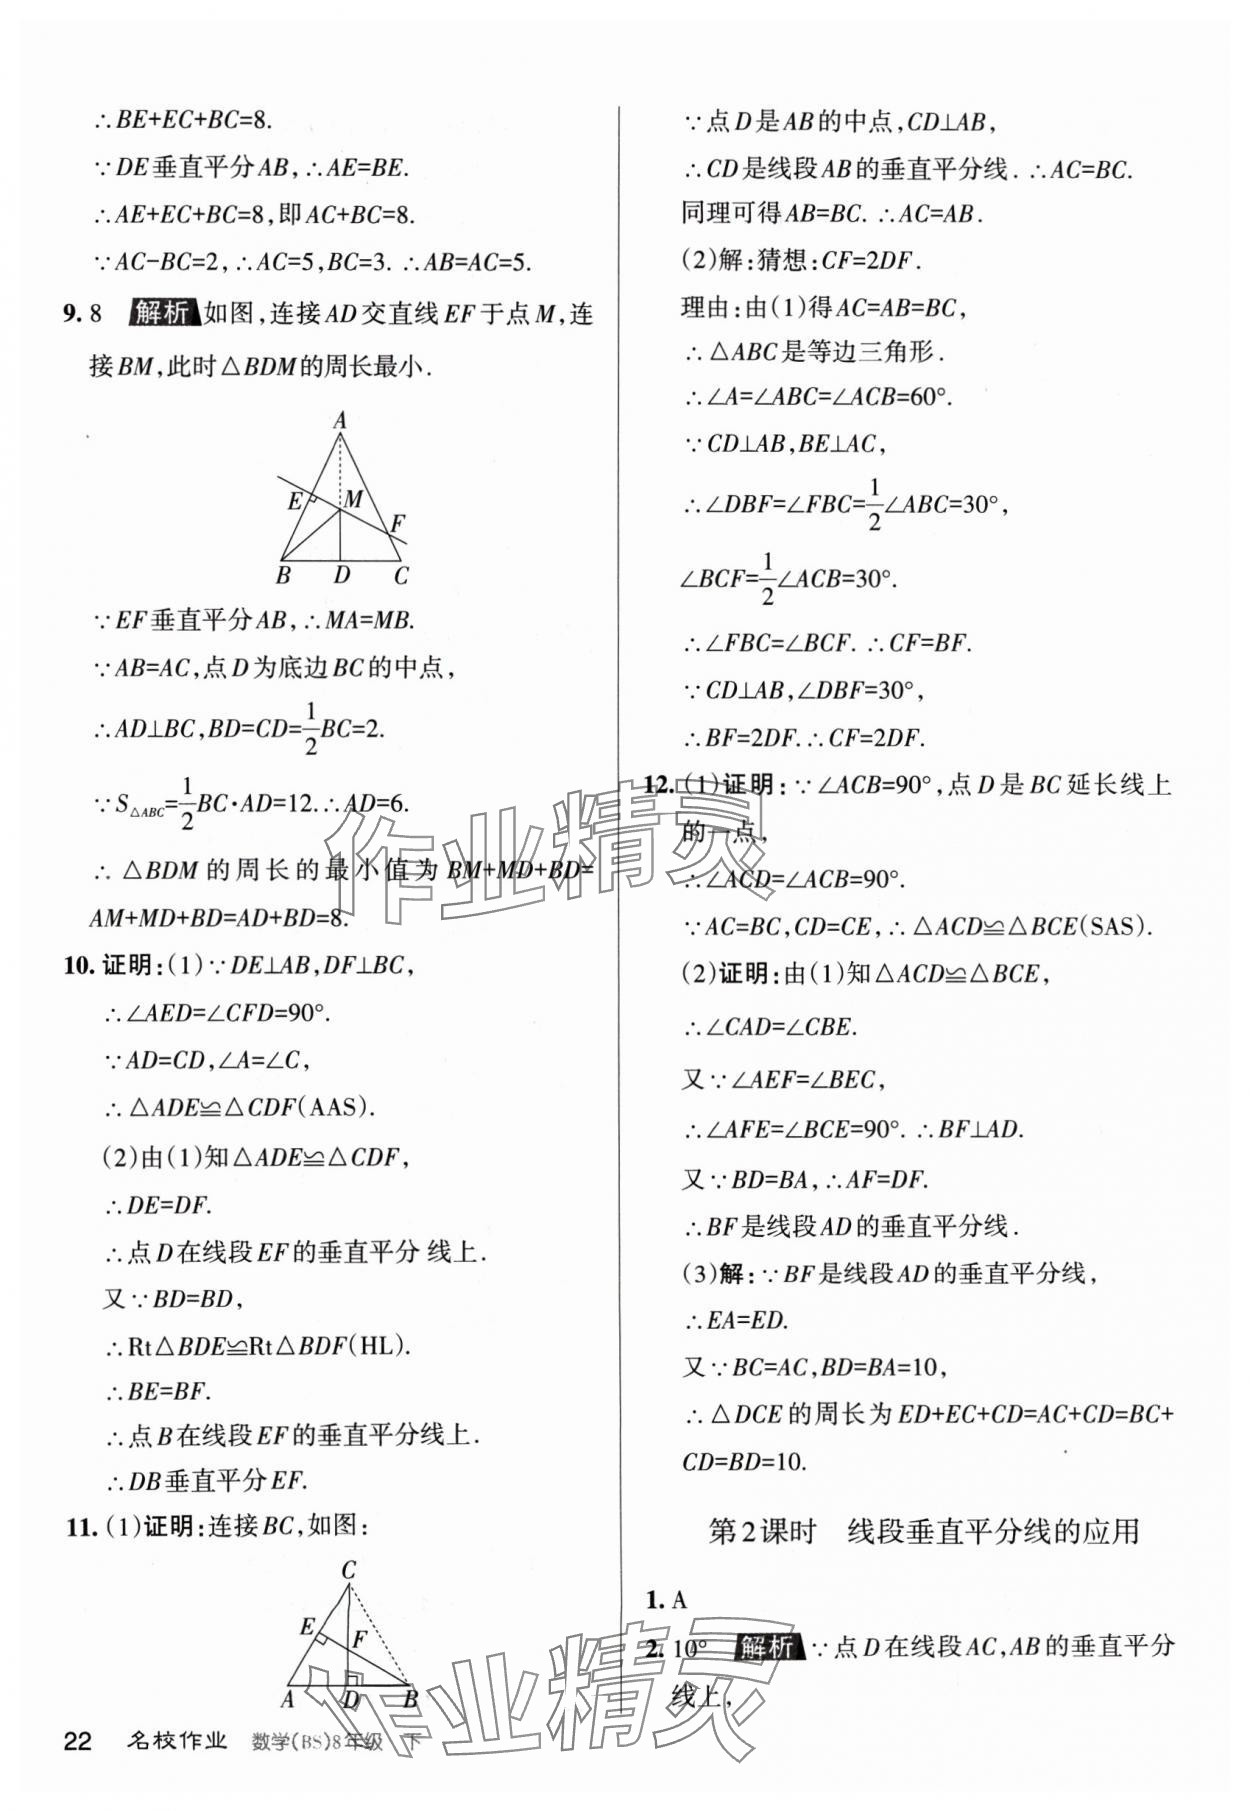 ∴BE+EC+BC=8.
∵DE垂直平分AB,∴AE=BE.
∴AE+EC+BC=8,即AC+BC=8.
∵AC-BC=2,∴AC=5,BC=3.∴AB=AC=5.
9. 8 解析 如图,连接AD交直线EF于点M,连
接BM,此时△BDM的周长最小.
A
E
M
F
B
D
C
∵EF垂直平分AB,∴MA=MB.
∵AB=AC,点D为底边BC的中点,
∴AD⊥BC,BD=CD=1/2BC=2.
∵S△ABC=1/2BC·AD=12.∴AD=6.
∴△BDM的周长的最小值为BM+MD+BD=
AM+MD+BD=AD+BD=8.
10. 证明:(1)∵DE⊥AB,DF⊥BC,
∴∠AED=∠CFD=90°.
∵AD=CD,∠A=∠C,
∴△ADE≌△CDF(AAS).
(2)由(1)知△ADE≌△CDF,
∴DE=DF.
∴点D在线段EF的垂直平分 线上.
又∵BD=BD,
∴Rt△BDE≌Rt△BDF(HL).
∴BE=BF.
∴点B在线段EF的垂直平分线上.
∴DB垂直平分EF.
11. (1)证明:连接BC,如图:
C
E
F
A
D
B
22 名校作业 数学(BS)8年级 下
∵点D是AB的中点,CD⊥AB,
∴CD是线段AB的垂直平分线.∴AC=BC.
同理可得AB=BC.∴AC=AB.
(2)解:猜想:CF=2DF.
理由:由(1)得AC=AB=BC,
∴△ABC是等边三角形.
∴∠A=∠ABC=∠ACB=60°.
∵CD⊥AB,BE⊥AC,
∴∠DBF=∠FBC=1/2∠ABC=30°,
∠BCF=1/2∠ACB=30°.
∴∠FBC=∠BCF.∴CF=BF.
∵CD⊥AB,∠DBF=30°,
∴BF=2DF.∴CF=2DF.
12. (1)证明:∵∠ACB=90°,点D是BC延长线上
的一点,
∴∠ACD=∠ACB=90°.
∵AC=BC,CD=CE,∴△ACD≌△BCE(SAS).
(2)证明:由(1)知△ACD≌△BCE,
∴∠CAD=∠CBE.
又∵∠AEF=∠BEC,
∴∠AFE=∠BCE=90°.∴BF⊥AD.
又∵BD=BA,∴AF=DF.
∴BF是线段AD的垂直平分线.
(3)解:∵BF是线段AD的垂直平分线,
∴EA=ED.
又∵BC=AC,BD=BA=10,
∴△DCE的周长为ED+EC+CD=AC+CD=BC+
CD=BD=10.
第2课时 线段垂直平分线的应用
1. A
2. 10° 解析 ∵点D在线段AC,AB的垂直平分
线上,
作业精灵
作业精灵